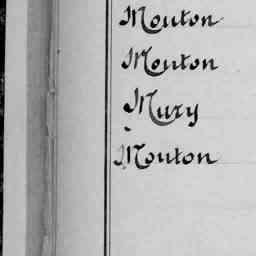 Mouton
Mouton
Mury
Mouton